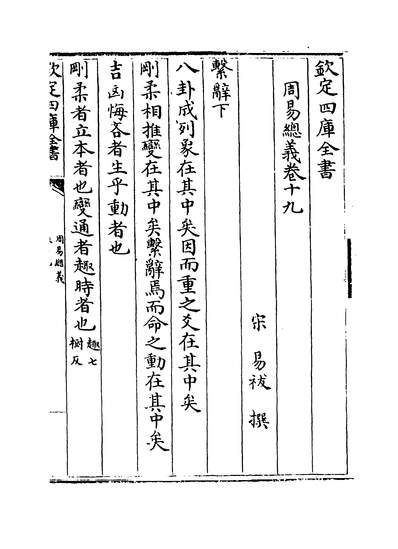 欽定四庫全書
周易總義卷十九
宋 易祓 撰
繫辭下
八卦成列象在其中矣因而重之爻在其中矣
剛柔相推變在其中矣繫辭焉而命之動在其中矣
吉凶悔吝者生乎動者也
剛柔者立本者也變通者趣時者也趣七樹反
欽定四庫全書
周易總義